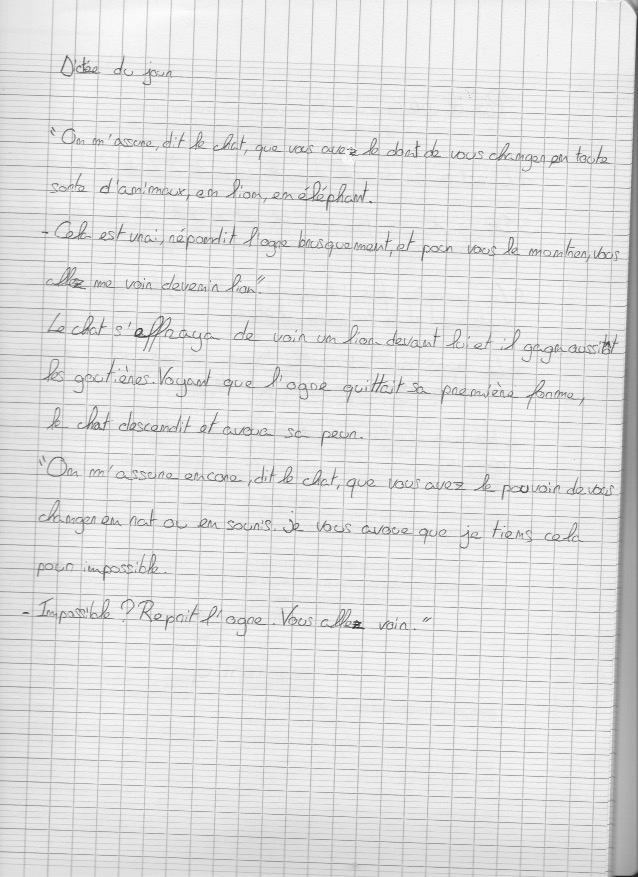 Dictée du jour
"On m'assure, dit le chat, que vous avez le dont de vous changer en toute
sorte d'animaux, en lion, en éléphant.
- Cela est vrai, répondit l'ogre brusquement, et pour vous le montrer, vous
allez me voir devenir lion".
Le chat s'effraya de voir un lion devant lui et il gagna aussitôt
les goutières. Voyant que l'ogre quittait sa première forme,
le chat descendit et avoua sa peur.
"On m'assure encore, dit le chat, que vous avez le pouvoir de vous
changer en rat ou en souris. Je vous avoue que je tiens cela
pour impossible.
- Impossible ? Reprit l'ogre. Vous allez voir."